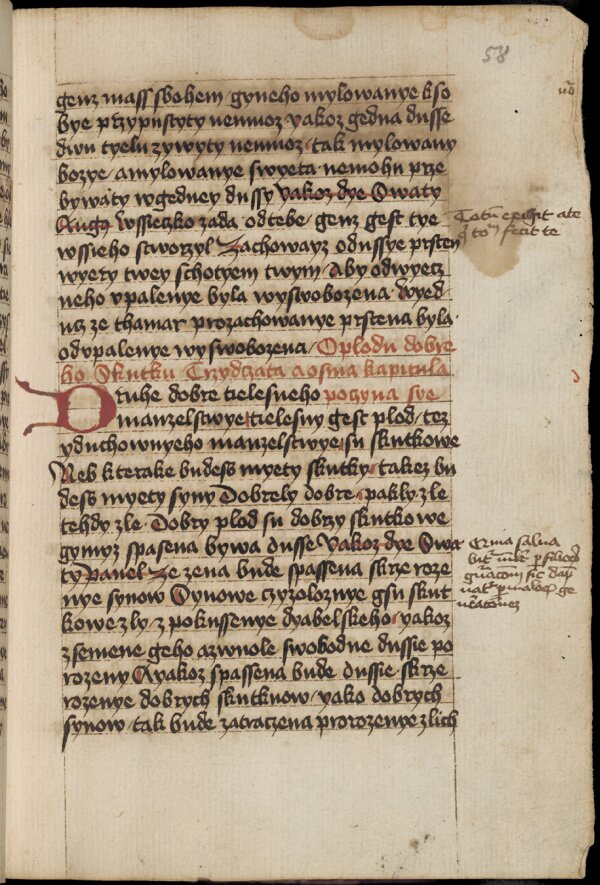 58
genz mass sbohem gyneho mylowanye kso
bye przypustyty nemuoz yakoz gedna dusse
dwu tyelu zywyty nemuoz tak mylowany
bozye amylowanye swyeta nemohu prze
bywaty wgedney dussy yakoz dye Swaty
Augꝰ wssieczko zada odtebe genz gest tye
wssieho stworzyl Zachoway z odussye prsten
wyery twey schotyem twym Aby odwyecz
neho vpalenye byla wyswobozena Wyed
uz ze thamar prozachowanye prstena byla
odvpalenye wyswobozena Oplodu dobre
ho Skutku Trzydczata aosma kapitula
Druhe dobre tielesneho poczyna sye
manzelstwye tielesny gest plod tez
yduchownyeho manzelstwye su skutkowe
Neb kterake budess myety skutky takez bu
dess myety syny Dobrely dobre pakly zle
tehdy zle Dobry plod su dobrzy skutkowe
gymyz spasena bywa dusse yakoz dye Swa
ty Pawel Ze zena bude spassena skrze roze
nye synow Synowe czyzoloznye gsu skut
kowe zly z pokussenye dyabelskeho yakoz
z semene geho azwuole swobodne dussie po
rozeny Ayakoz spassena bude dussie skrze
rozenye dobrych skutkuow yako dobrych
synow tak bude zatraczena prorozenye zlich
Totū exigit a te
q̄ totū fecit te